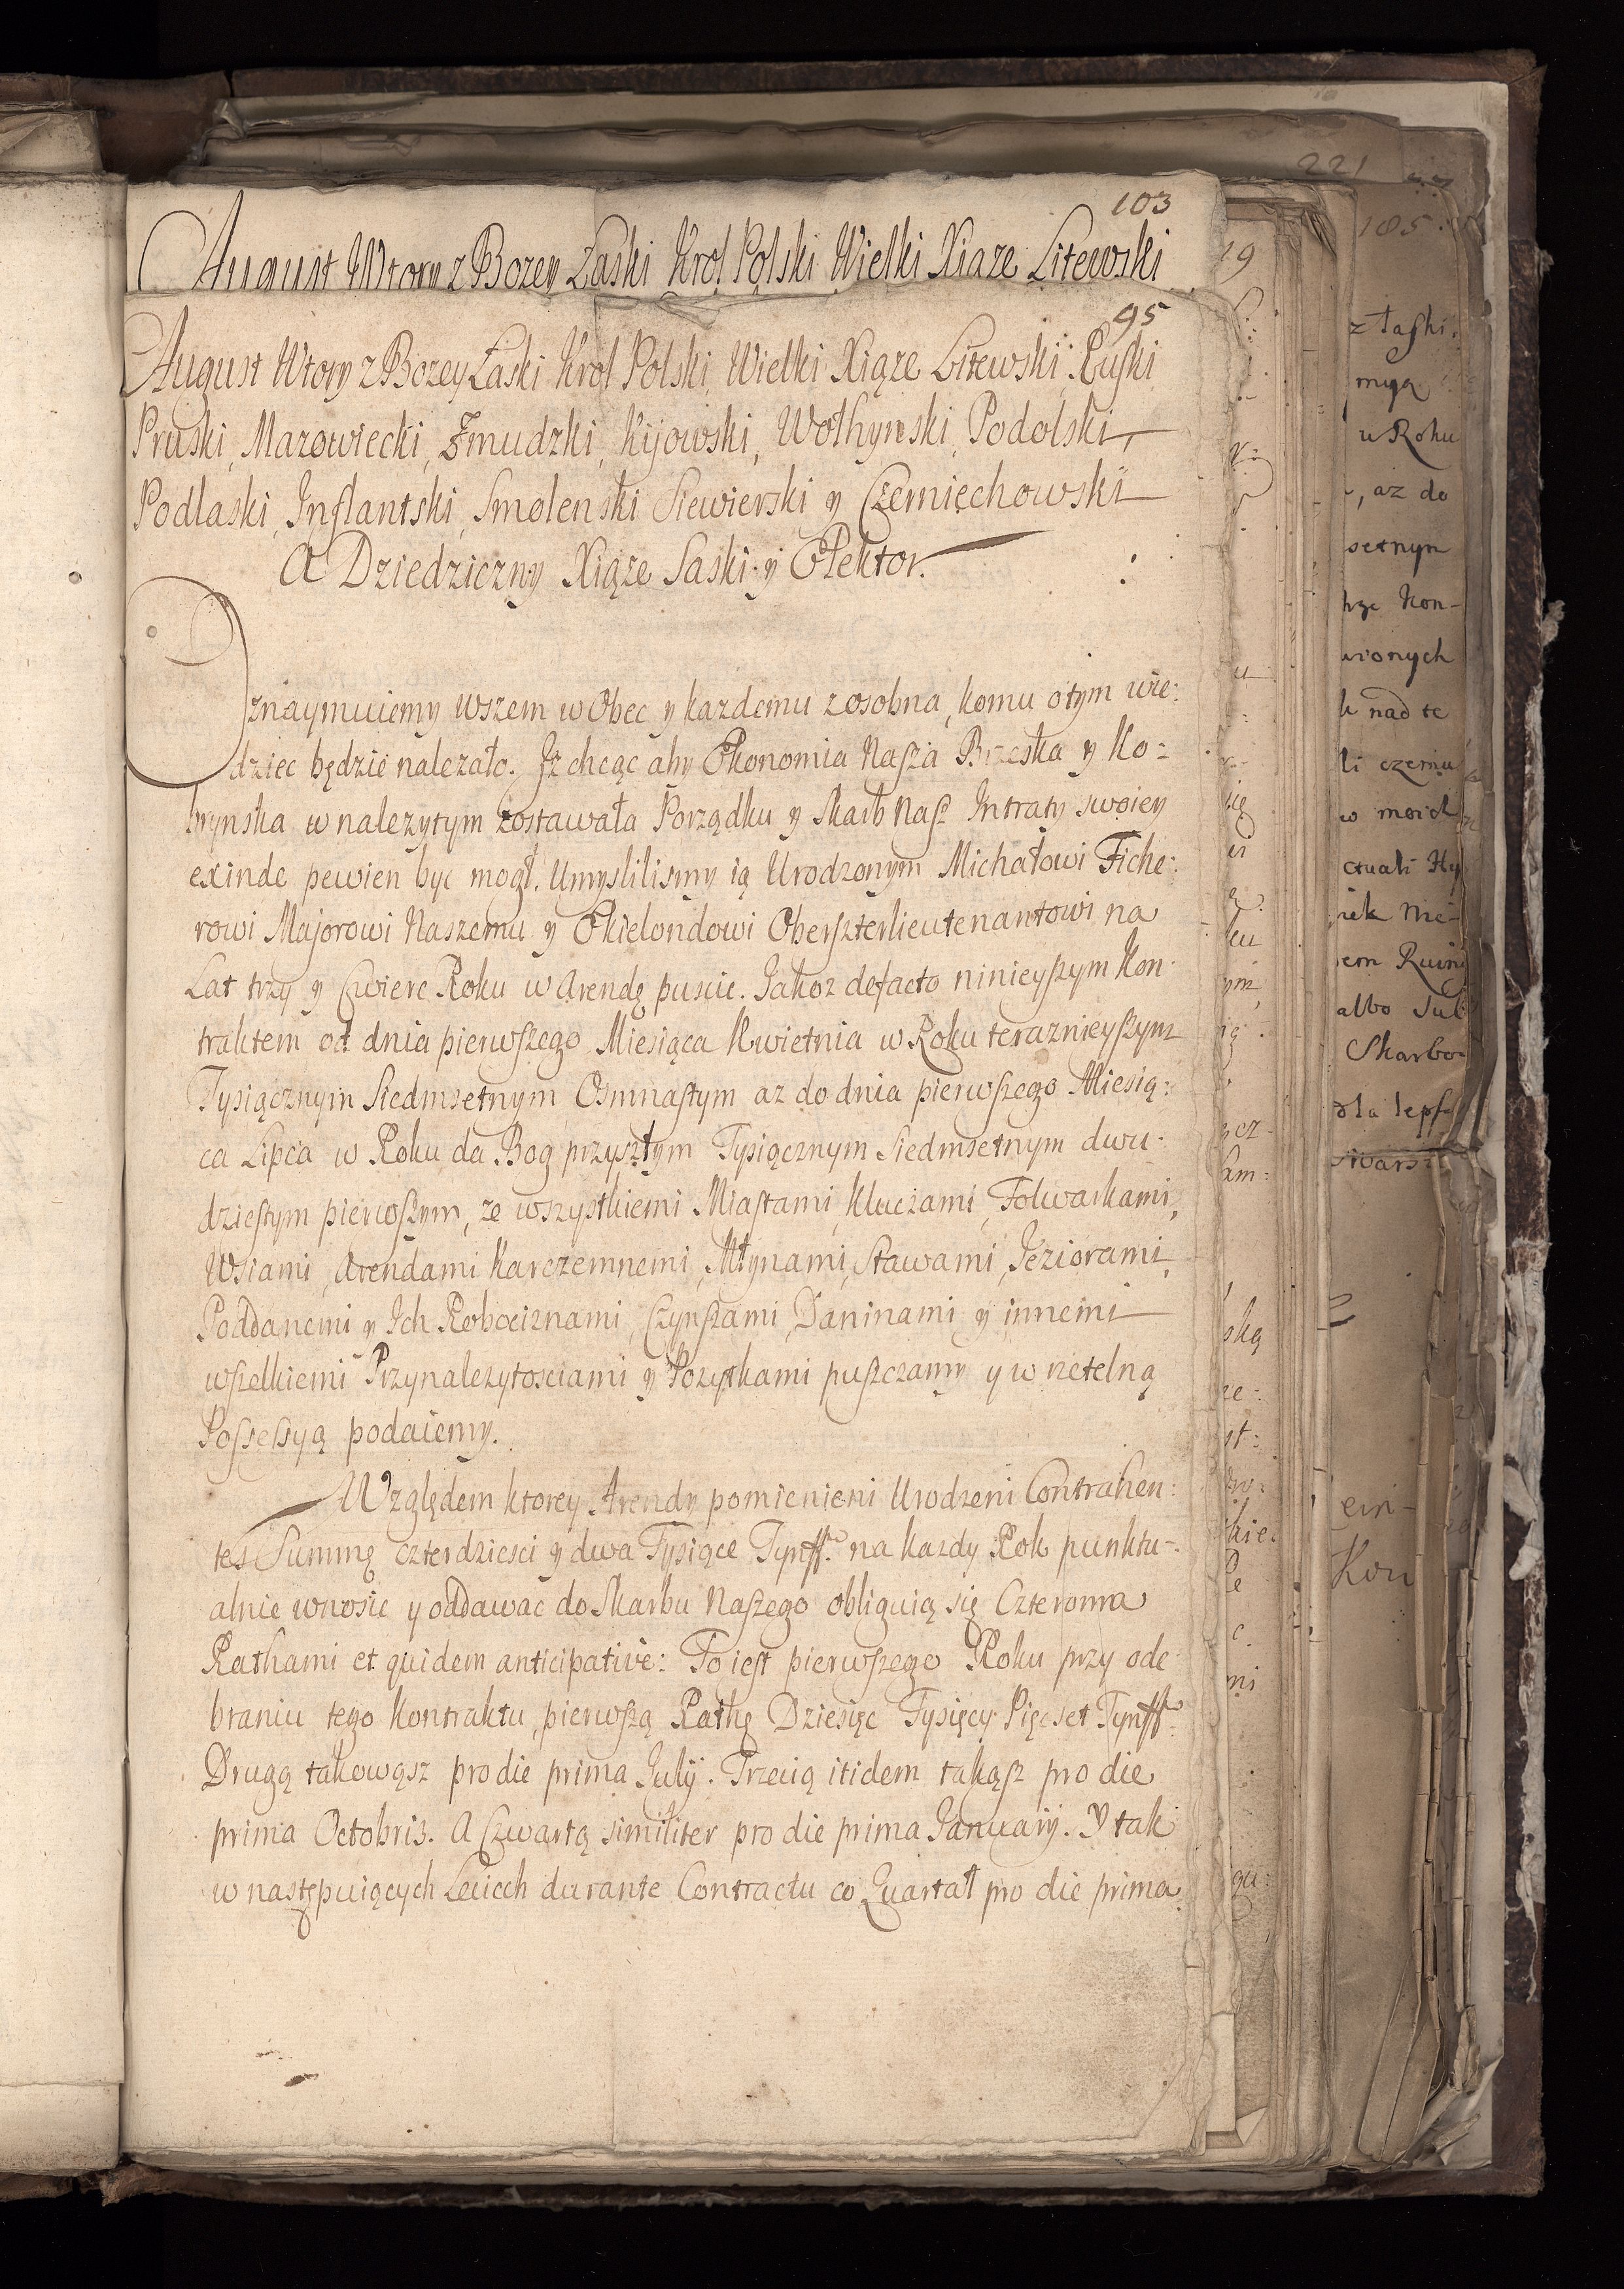 221
103
August Wtory z Bozey Łaski Krol Polski Wielki Xiąze Litewski
95
August Wtory z Bozey Łaski Krol Polski, Wielki Xiąze Litewski, Ruski
Pruski, Mazowiecki, Zmudzki, Kijowski, Wołhynski, Podolski,
Podlaski, Inflantski, Smolenski Siewierski y Czerniechowski
A Dziedziczny Xiąze Saski y Elektor.
Oznaymuiemy wszem w Obec y kazdemu z osobna, komu o tym wie:
dziec będzie nalezało. Iz chcąc aby Ekonomia Nasza Brzeska y Ko:
brynska w nalezytym zostawała Porządku y Skarb Nasz Intraty swoiey
exinde pewien byc mogł. Umyslilismy ią Urodzonym Michałowi Fiche:
rowi Majorowi Naszemu y Ekielondowi Oberszterlieutenantowi na
Lat trzy y Cwierc Roku w Arendę puscic. Jakoz defacto ninieyszym Kon:
traktem od dnia pierwszego Miesiąca Kwietnia w Roku teraznieyszym
Tysiącznym Siedmsetnym Osmnastym az do dnia pierwszego Miesią:
ca Lipca w Roku da Bog przyszłym Tysiącznym Siedmsetnym dwu:
dziestym pierwszym, ze wszystkiemi Miastami, Kluczami, Folwarkami,
Wsiami, Arendami Karczemnemi, Młynami, Stawami, Jeziorami,
Poddanemi y Ich Robociznami, Czynszami, Daninami y innemi
wszelkiemi Przynalezytosciami y Pozytkami puszczamy y w rzetelną
Possessyą podaiemy.
Względem ktorey Arendy pomienieni Urodzeni Contrahen:
tes Summę czterdziesci y dwa Tysiące Tynff. na kazdy Rok punktu:
alnie wnosic y oddawac do Skarbu Naszego obliguią się Czteroma
Rathami et quidem anticipative: To iest pierwszego Roku przy ode:
braniu tego Kontraktu, pierwszą Rathę Dziesięc Tysięcy Pięcset Tynff.
Drugą takowąsz pro die prima Julij. Trzecią itidem takąsz pro die
prima Octobris. A Czwartą similiter pro die prima Januarij. Y tak
w następuiących Leciech durante Contractu co Quartał pro die prima
19
185
z łaski
w Roku
, az do
setnym
Kon-
nad te
li czemu
w moich
albo Sub
Skarbo-
dla leps